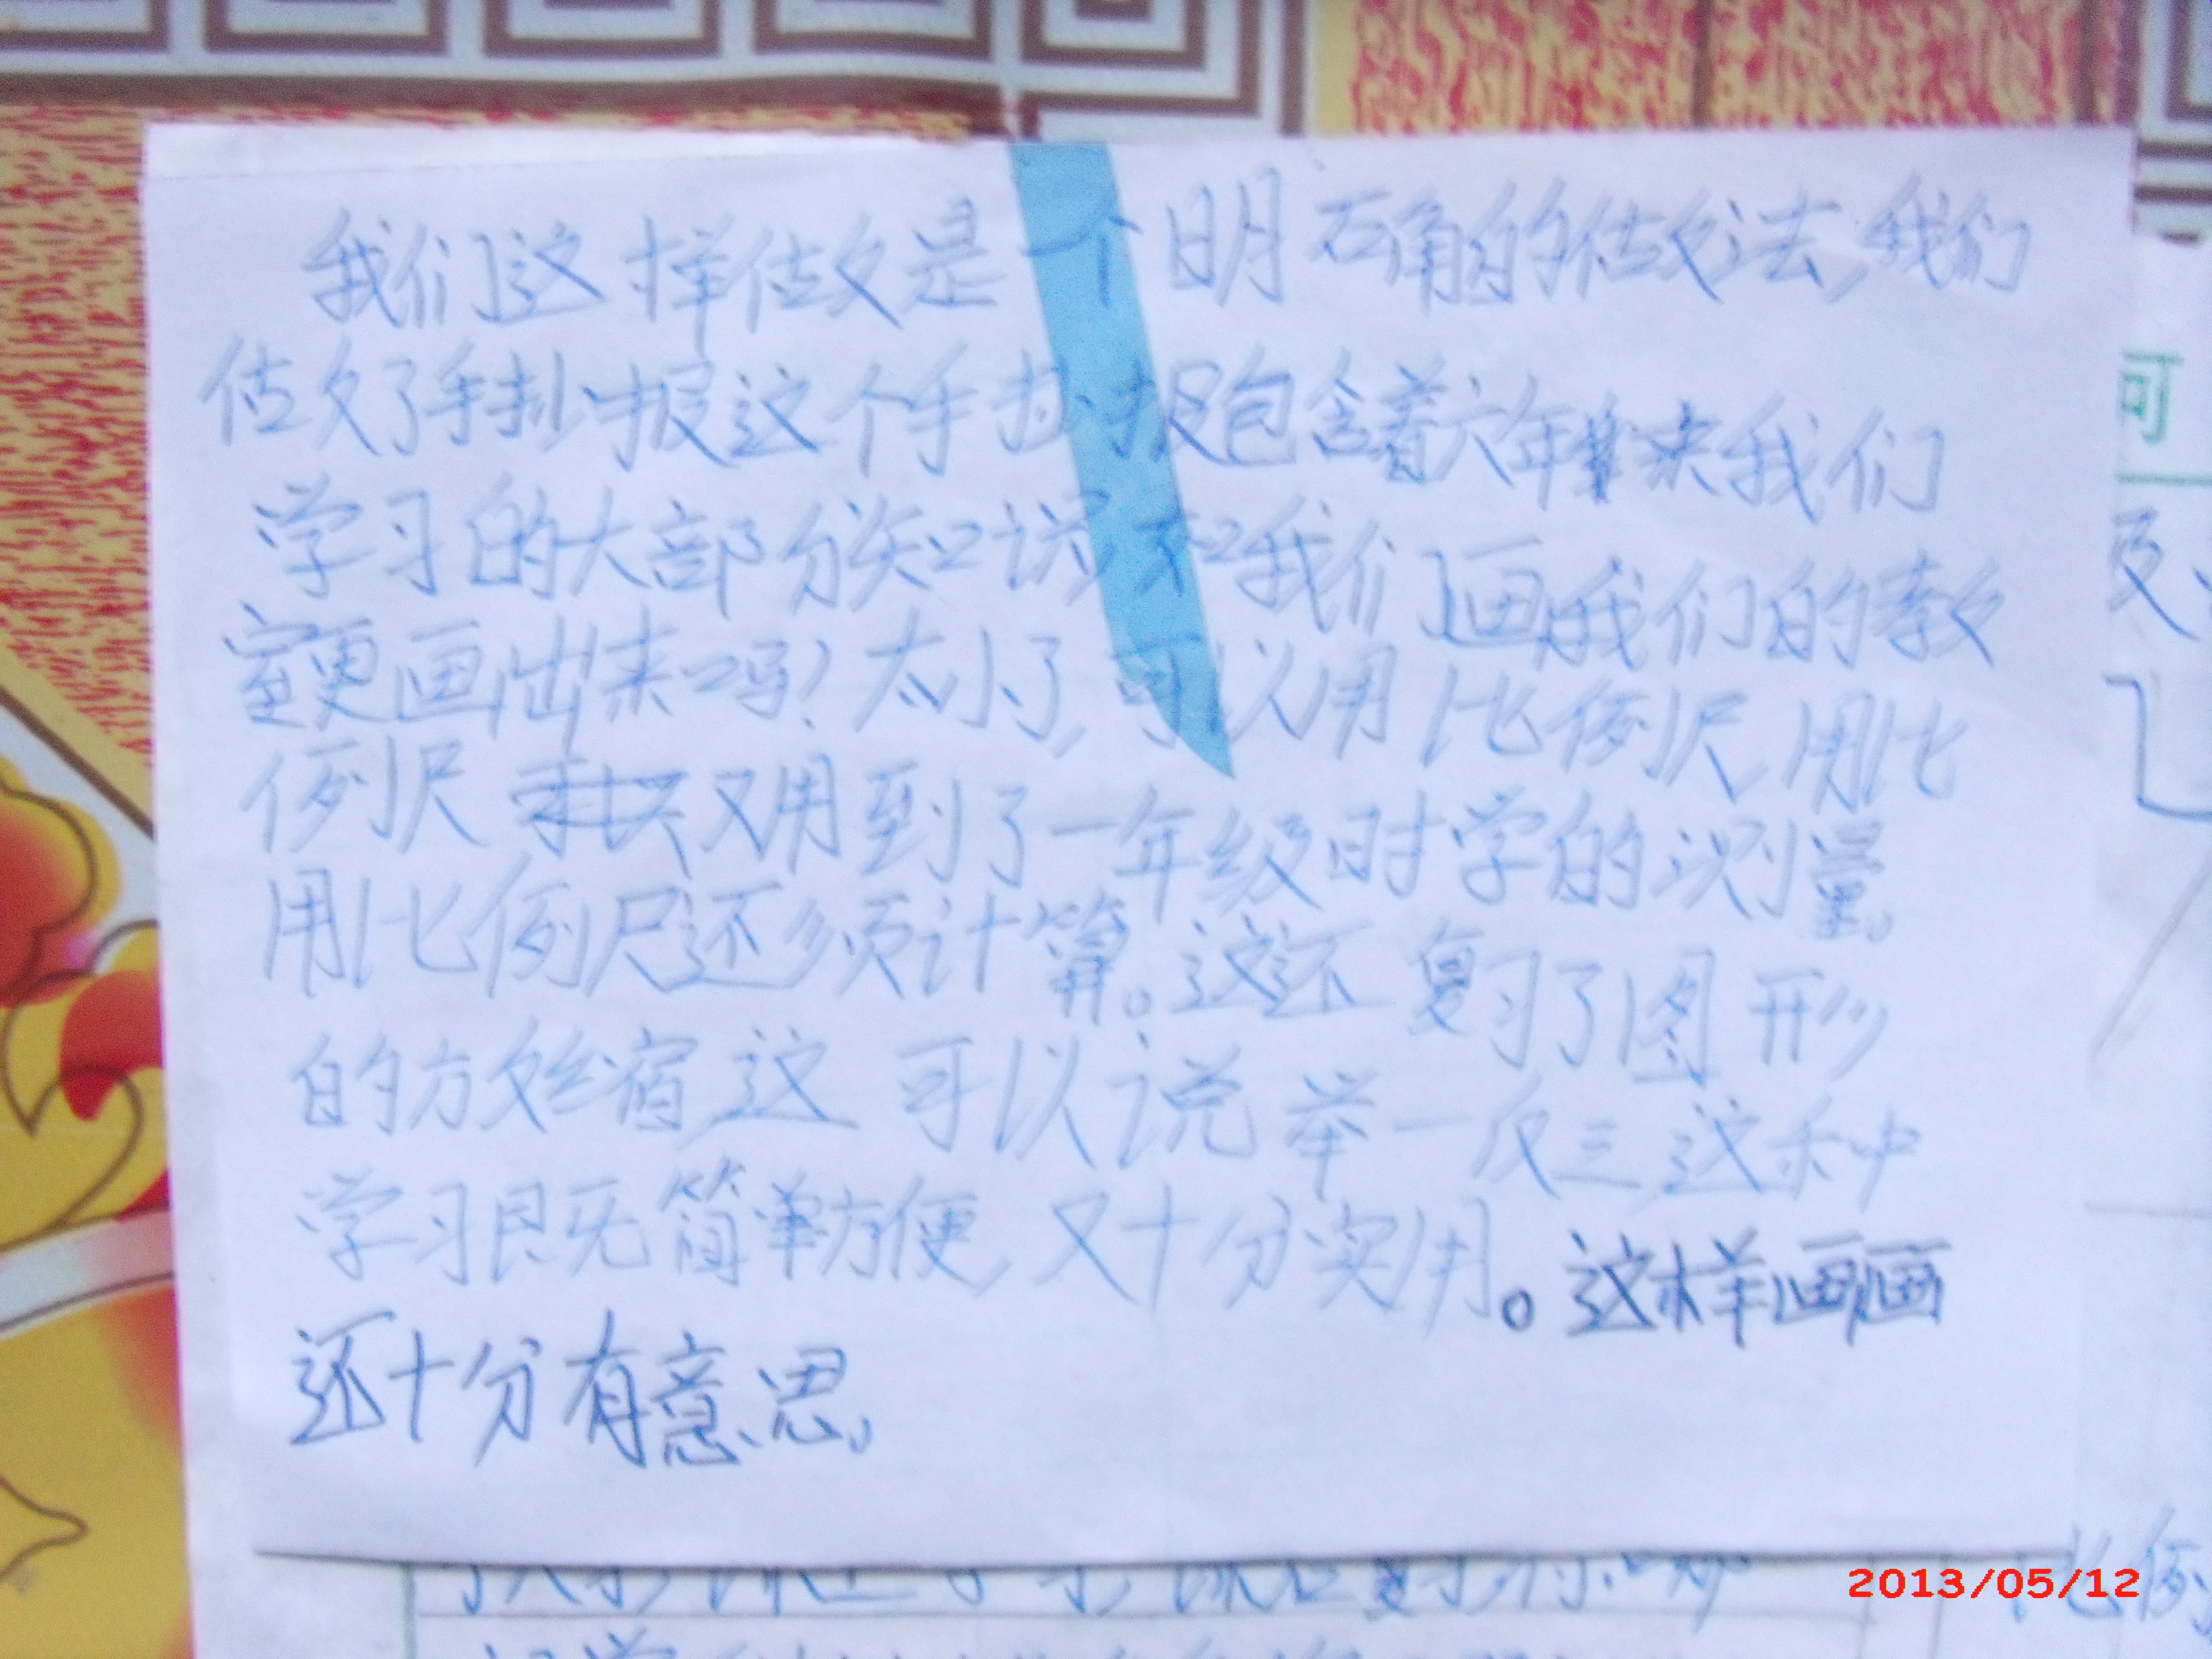 我们这样做是一个明确的做法,我们
做了手抄报这个手抄报包含着六年来我们
学习的大部分知识和我们画我们的教
室更画出来吗!太小了,可以用比例尺,用比
例尺 又用到了一年级时学的测量,
用比例尺还须计算。这还复习了图形
的放缩这可以说举一反三这种
学习既简单方便,又十分实用。这样画画
还十分有意思,
2013/05/12
可
比例